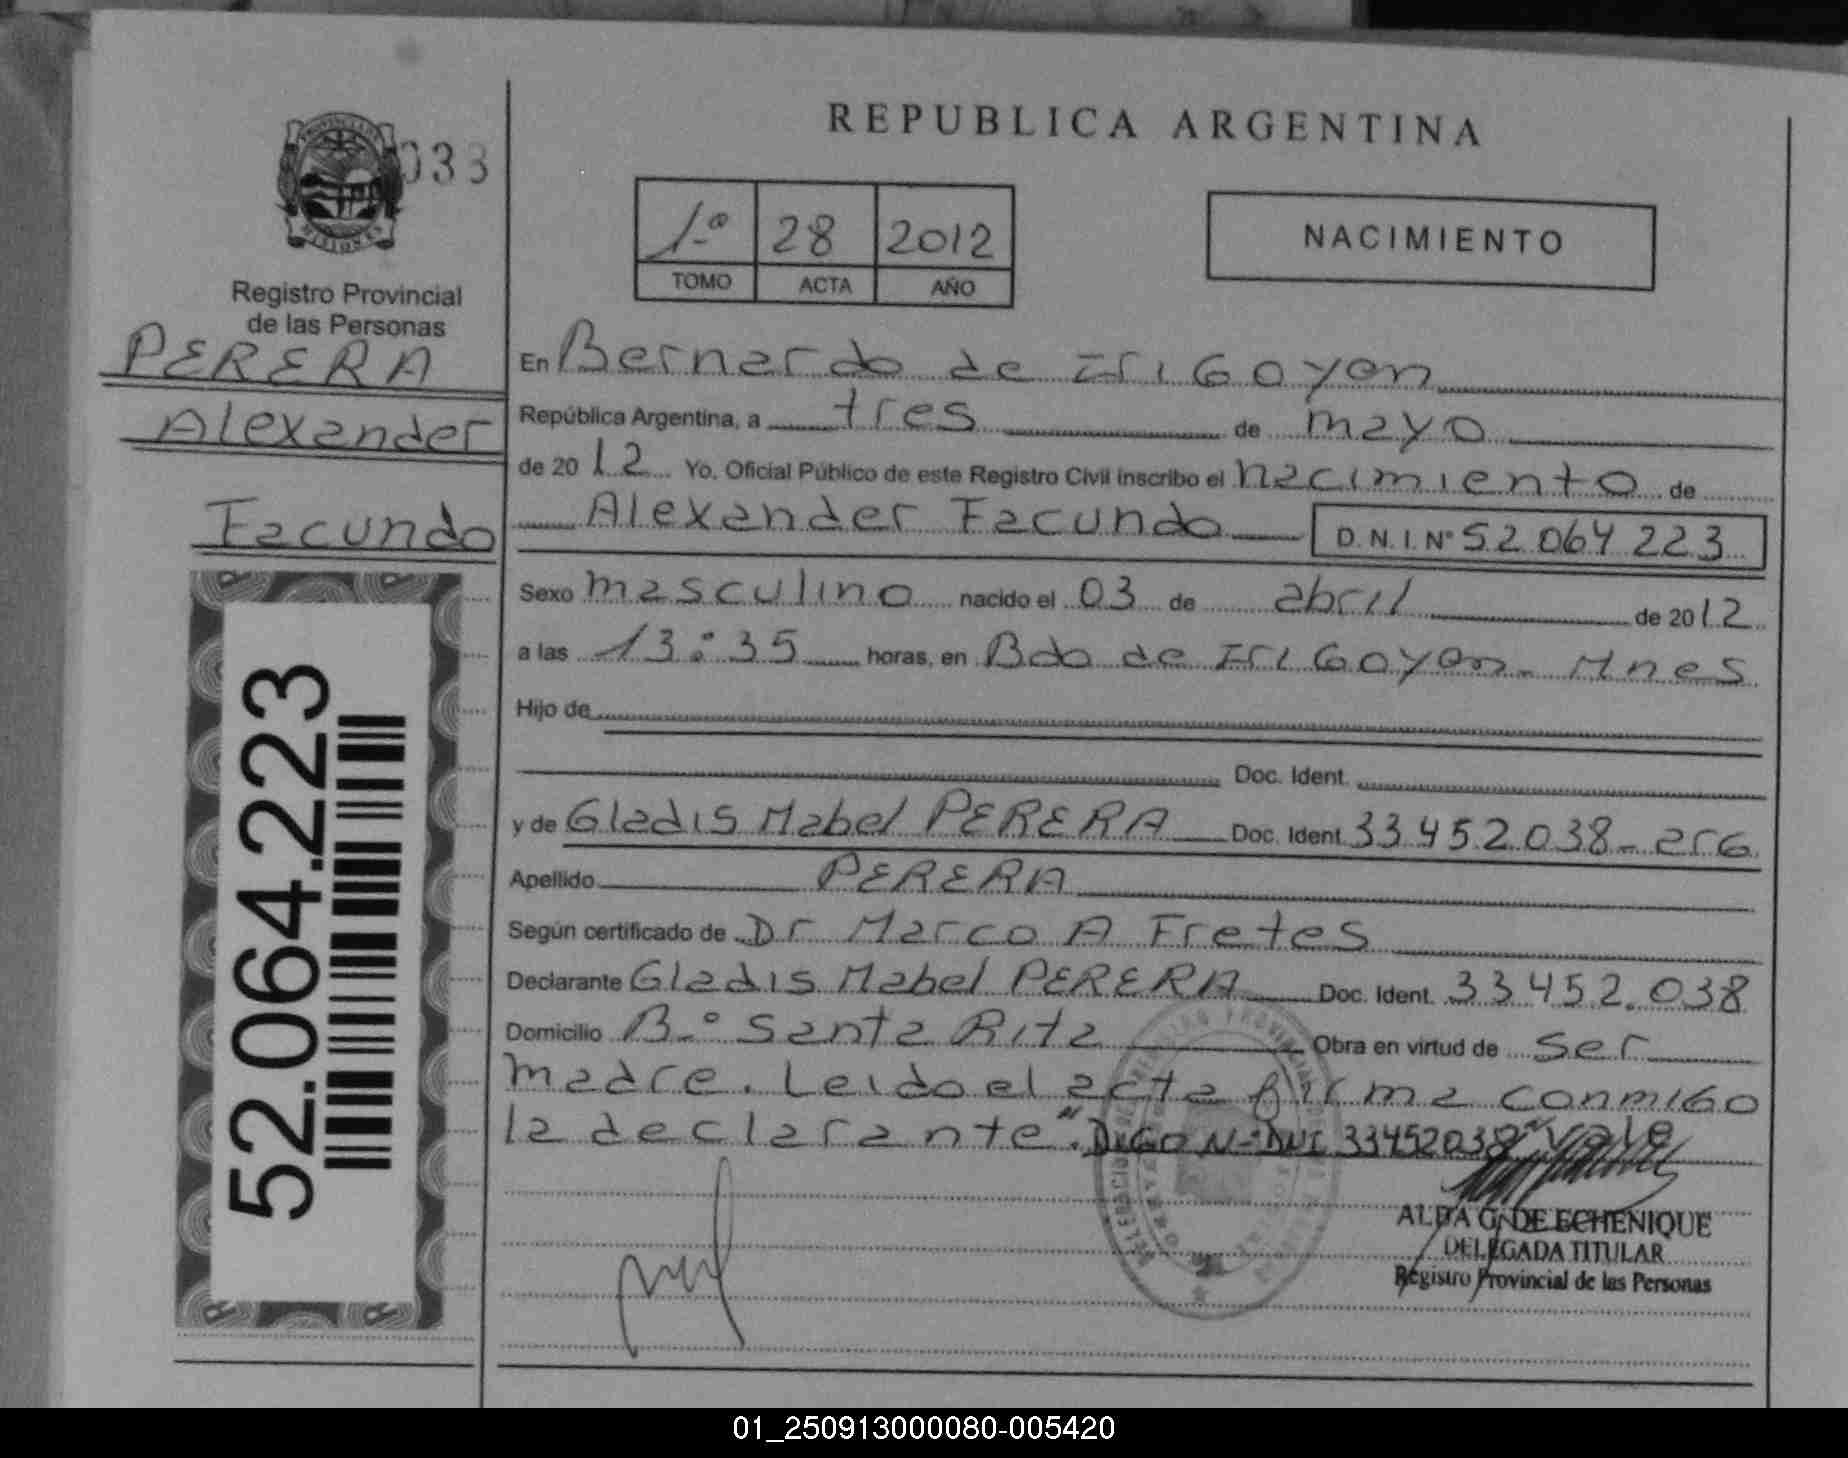 PROVINCIA DE
MISIONES
033
Registro Provincial
de las Personas
PERERA
Alexander
Facundo
52.064.223
REPUBLICA ARGENTINA
1-º 28 2012
TOMO ACTA AÑO
NACIMIENTO
En Bernardo de IriGoyen
República Argentina, a tres de mayo
de 2012 Yo, Oficial Público de este Registro Civil inscribo el nacimiento de
Alexander Facundo D.N.I. Nº 52 064 223
Sexo masculino nacido el 03 de abril de 2012
a las 13:35 horas, en Bdo de IriGoyen - Mnes
Hijo de
Doc. Ident.
y de Gladis Mabel PERERA Doc. Ident. 33.452.038 - arG
Apellido PERERA
Según certificado de Dr Marco A Fretes
Declarante Gladis Mabel PERERA Doc. Ident. 33.452.038
Domicilio B-º Santa Rita Obra en virtud de ser
madre. Leido el acta firma conmiGo
la declarante". DiGO N-º DNI 33452038" vale
ALBA G. DE ECHENIQUE
DELEGADA TITULAR
Registro Provincial de las Personas
01_250913000080-005420